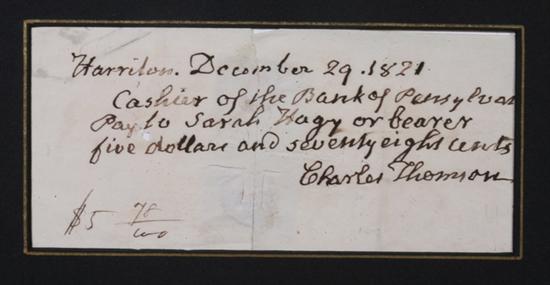 Harriton. December 29. 1821
Cashier of the Bank of Pensylvan
Pay to Sarah Hagy or bearer
five dollars and seventy eight cents
Charles Thomson
$5 78/100